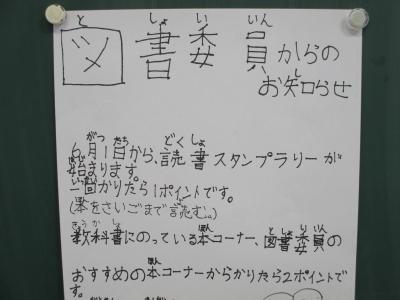 図書委員からの
お知らせ
6月1日から、読書スタンプラリーが
始まります。
一回かりたら1ポイントです。
(本をさいごまで読む。)
教科書にのっている本コーナー、図書委員の
おすすめの本コーナーからかりたら2ポイントで
す。